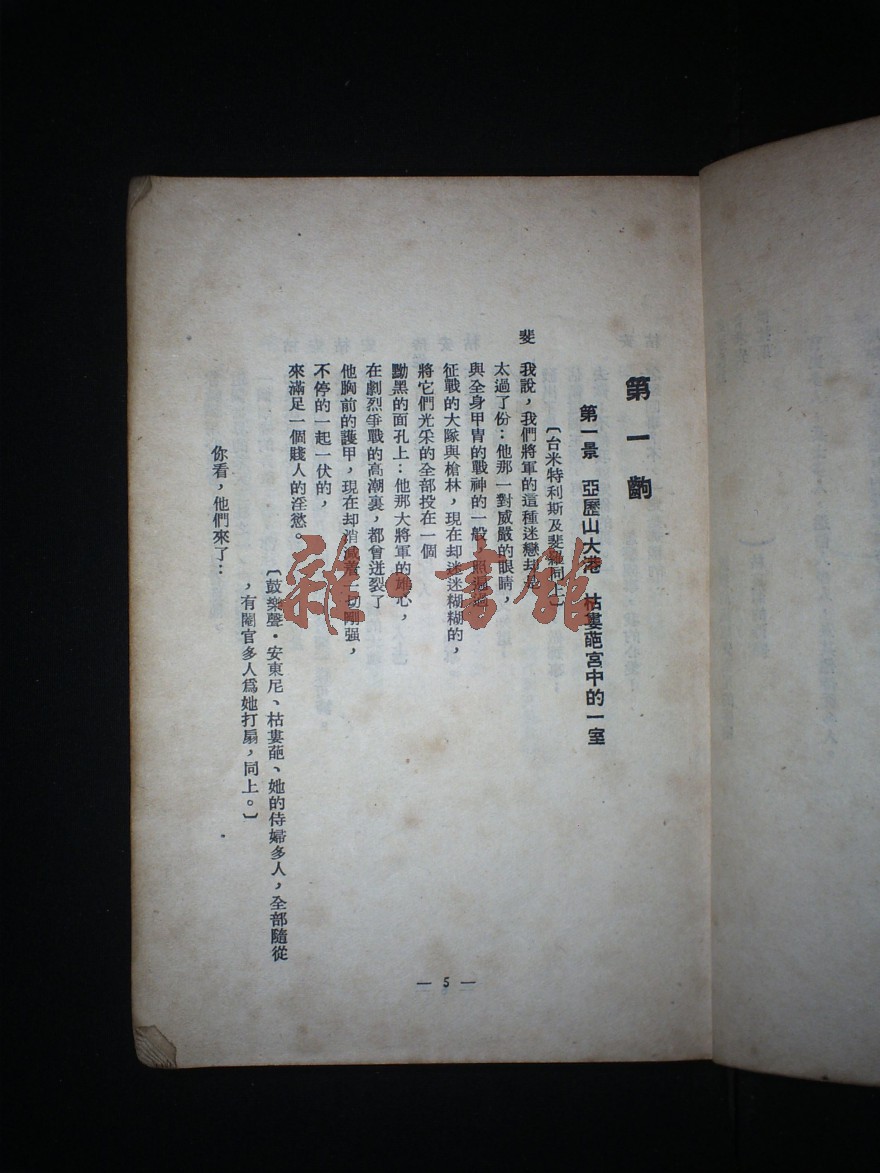 第一齣
第一景　亞歷山大港　枯婁葩宮中的一室
〔台米特利斯及斐　同上〕
斐　我說，我們將軍的這種迷戀却是
太過了份：他那一對威嚴的眼睛，
與全身甲冑的戰神的一般，照
征戰的大隊與槍林，現在却迷迷糊糊的，
將它們光采的全部投在一個
黝黑的面孔上：他那大將軍的雄心，
在劇烈爭戰的高潮裏，都曾迸裂了
他胸前的護甲，現在却消滅着一切剛强，
不停的一起一伏的，
來滿足一個賤人的淫慾。
〔鼓樂聲・安東尼、枯婁葩、她的侍婦多人，全部隨從
，有閹官多人爲她打扇，同上。〕
你看，他們來了：
— 5 —
雜・書館